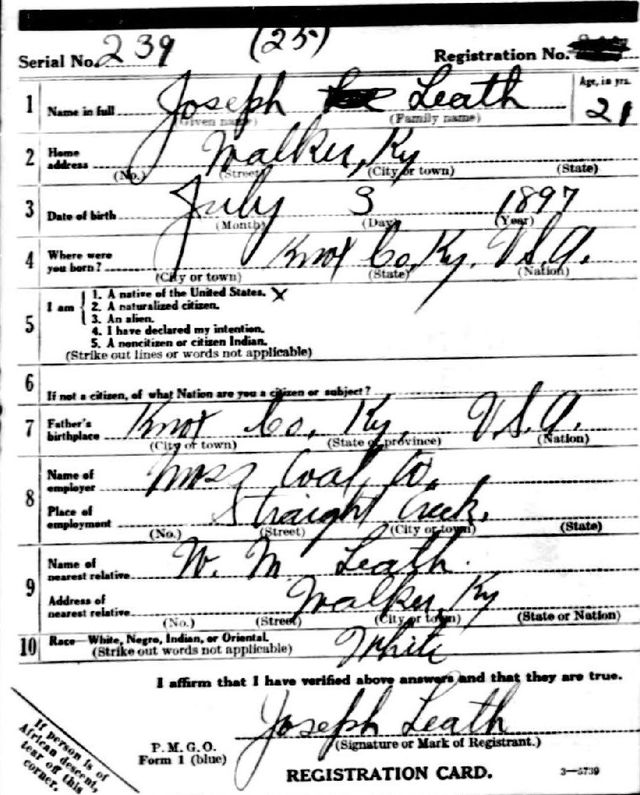 Serial No. 239 (25) Registration No.
1 Name in full Joseph Leath Age, in yrs. 21
(Given name) (Family name)
2 Home address Walker, Ky
(No.) (Street) (City or town) (State)
3 Date of birth July 3 1897
(Month) (Day) (Year)
4 Where were you born? Knox Co, Ky. U.S.A.
(City or town) (State) (Nation)
5 I am
1. A native of the United States. X
2. A naturalized citizen.
3. An alien.
4. I have declared my intention.
5. A noncitizen or citizen Indian.
(Strike out lines or words not applicable)
6 If not a citizen, of what Nation are you a citizen or subject?
7 Father's birthplace Knox Co, Ky, U.S.A.
(City or town) (State or province) (Nation)
8 Name of employer Moss Coal Co.
Place of employment Straight Creek.
(No.) (Street) (City or town) (State)
9 Name of nearest relative W. M Leath.
Address of nearest relative Walker, Ky
(No.) (Street) (City or town) (State or Nation)
10 Race—White, Negro, Indian, or Oriental. White
(Strike out words not applicable)
I affirm that I have verified above answers and that they are true.
Joseph Leath
P. M. G. O. (Signature or Mark of Registrant.)
Form 1 (blue)
REGISTRATION CARD. 3—5739
If person is of
African descent,
tear off this
corner.